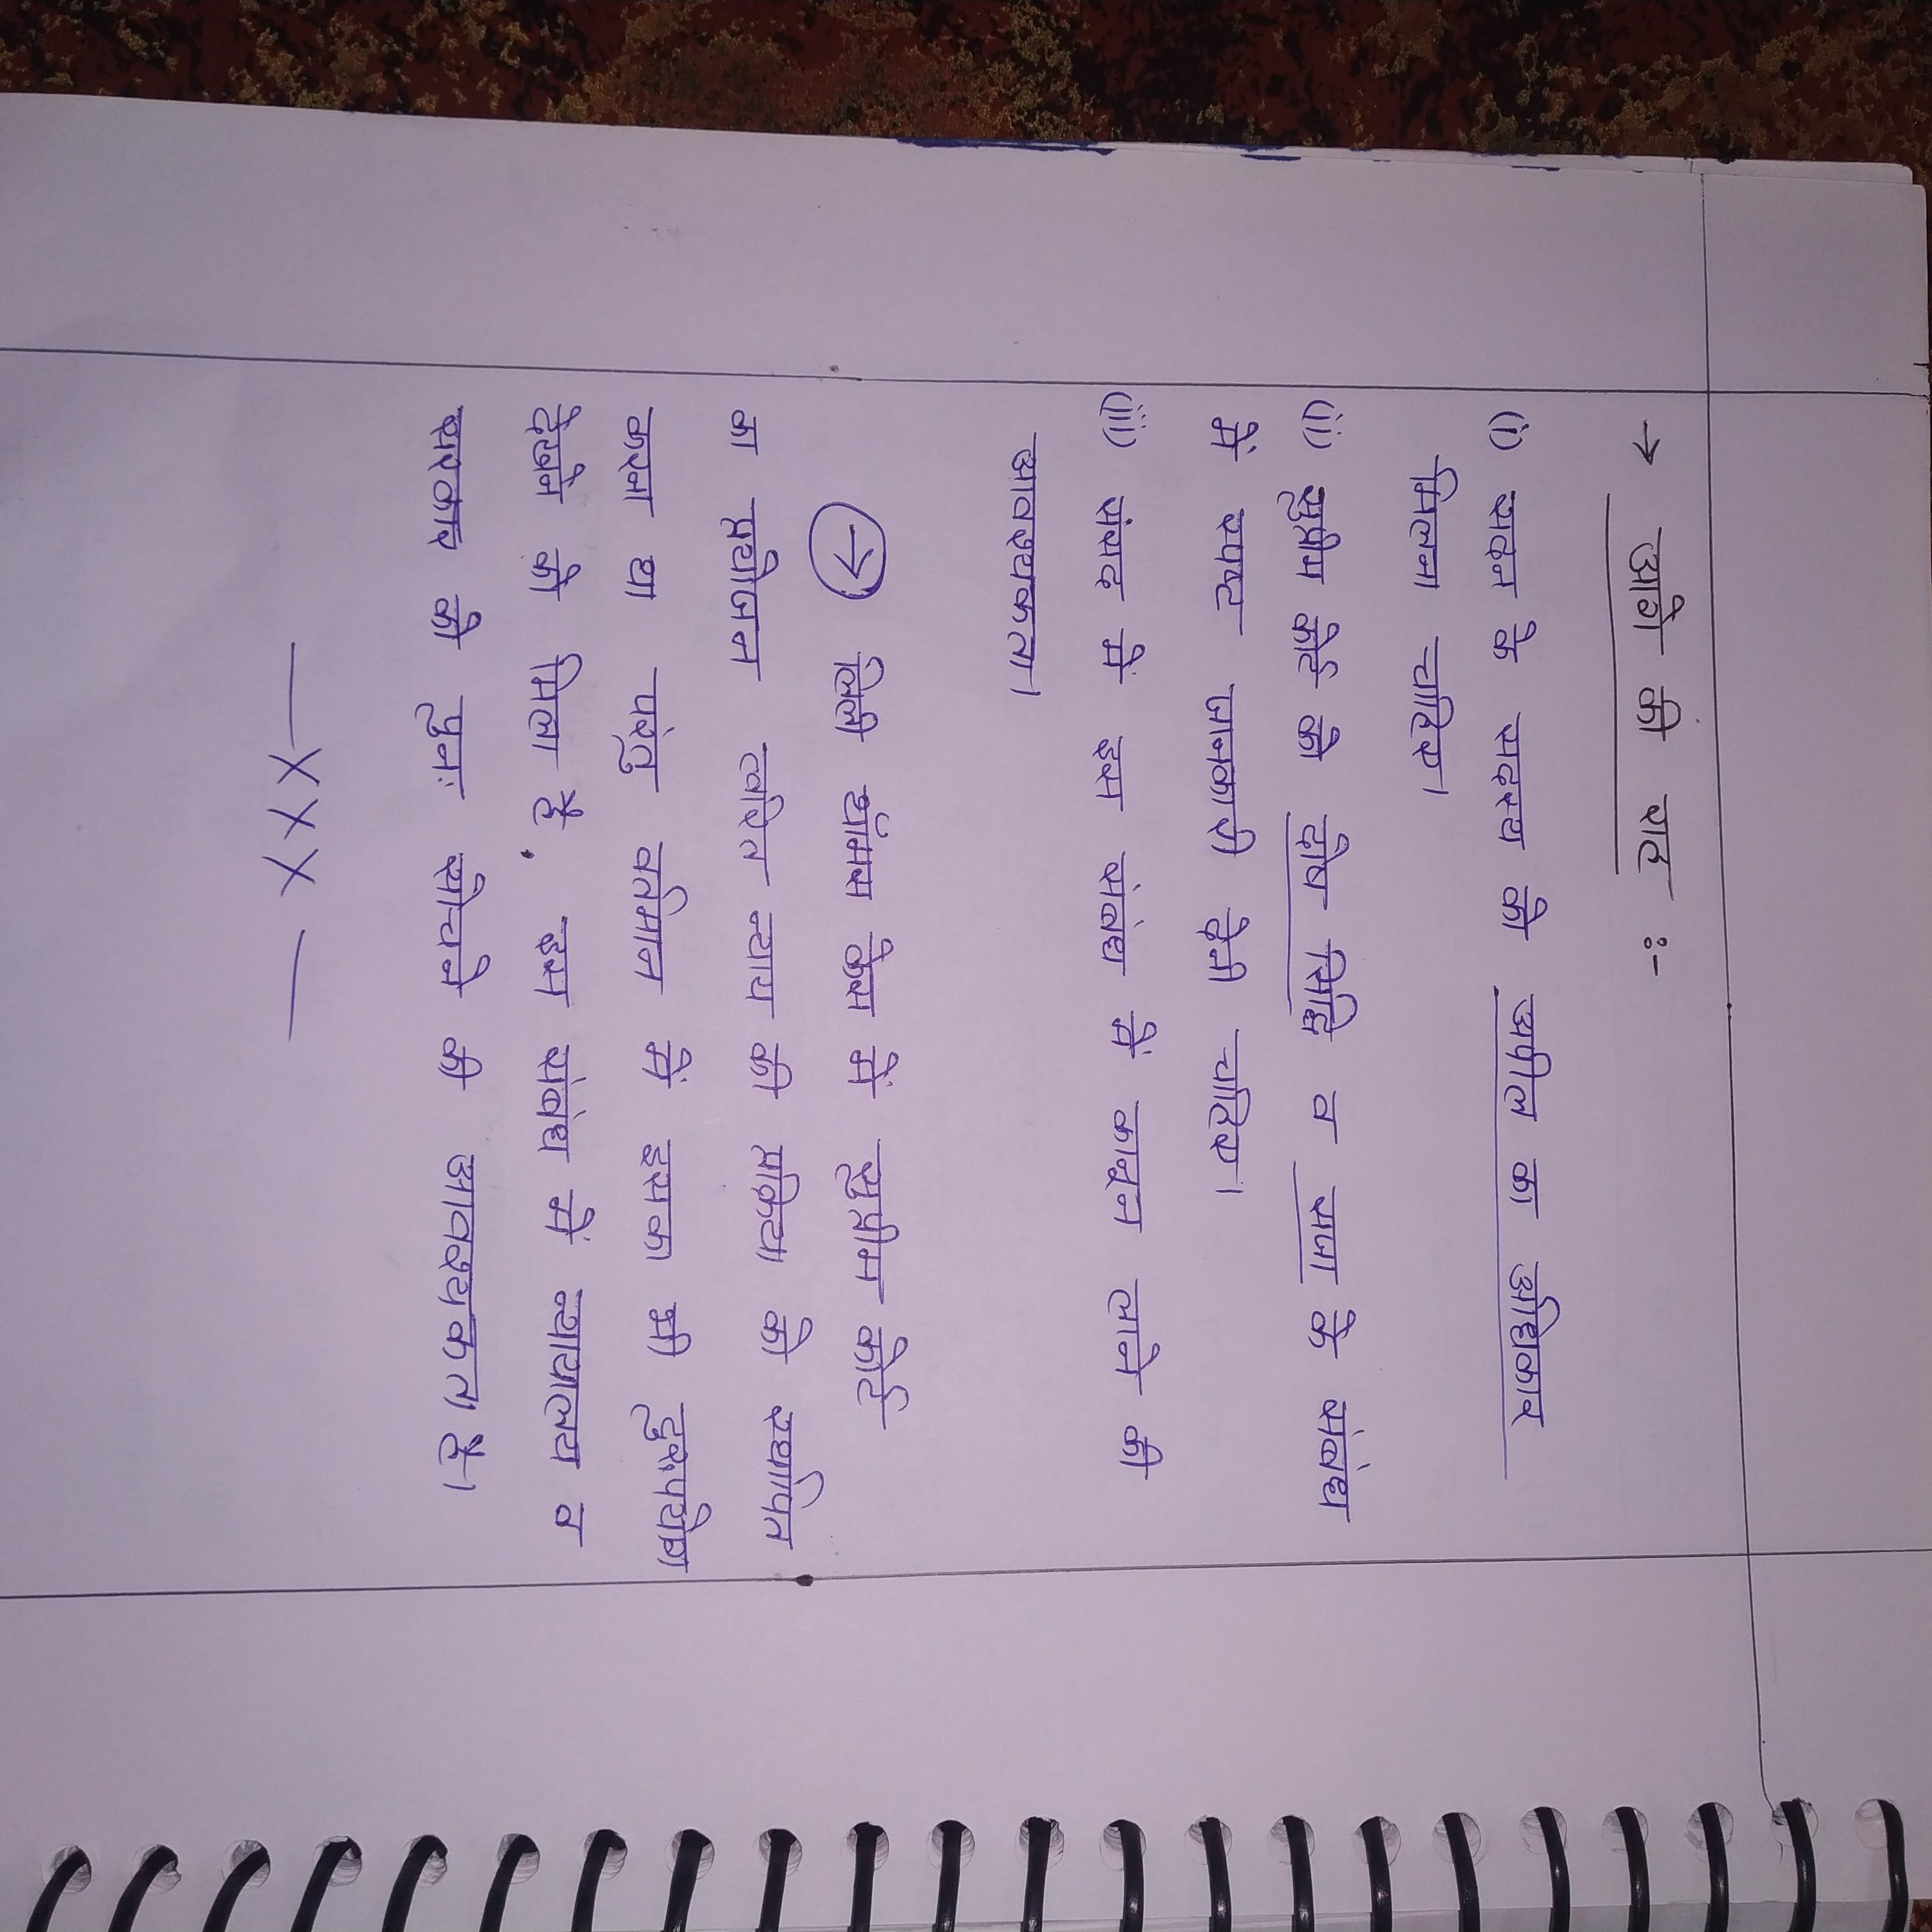 → आगे की राह :-
(i) सदन के सदस्य को अपील का अधिकार
मिलना चाहिए।
(ii) सुप्रीम कोर्ट को दोष सिद्धि व सजा के संबंध
में स्पष्ट जानकारी देनी चाहिए।
(iii) संसद में इस संबंध में कानून लाने की
आवश्यकता।
→ लिली थॉमस केस में सुप्रीम कोर्ट
का प्रयोजन त्वरित न्याय की प्रक्रिया को स्थापित
करना था परंतु वर्तमान में इसका भी दुरूपयोग
देखने को मिला है, इस संबंध में न्यायालय व
सरकार को पुनः सोचने की आवश्यकता है।
—XXX—